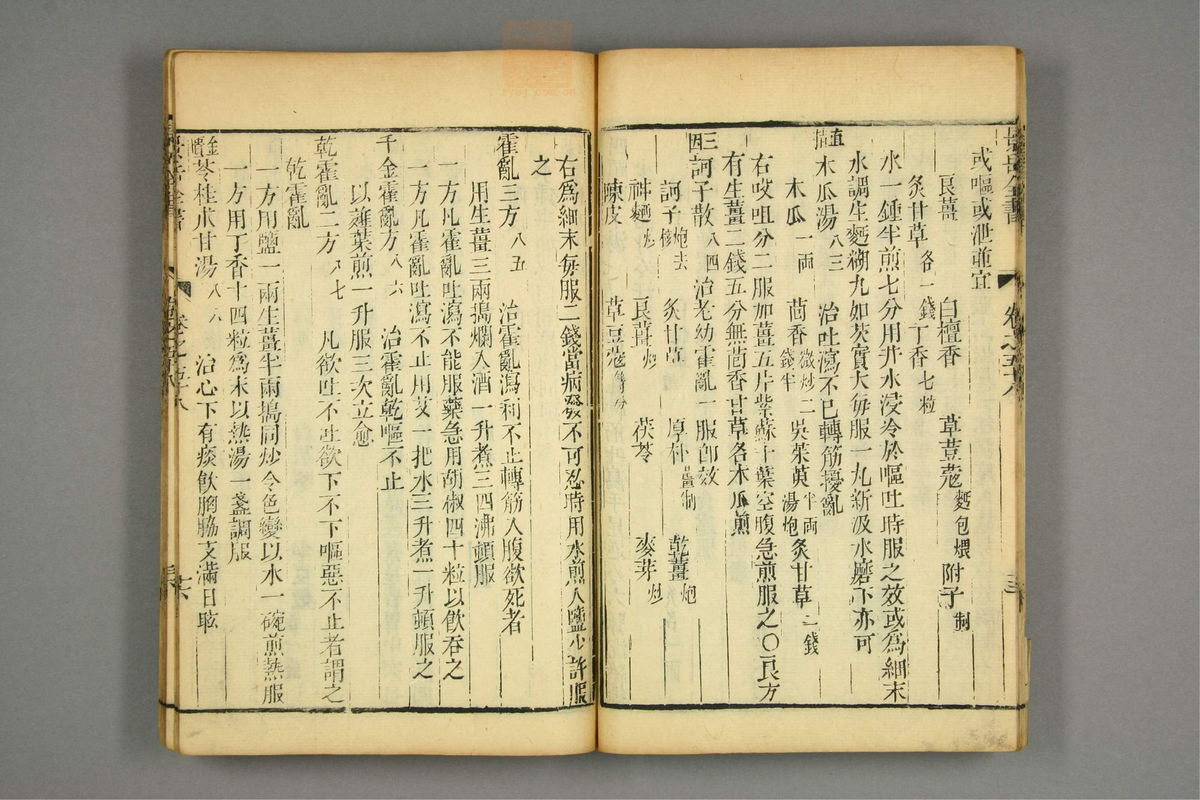 或嘔或泄並宜
良薑 白檀香 草荳蔻 麵包煨 附子 制
炙甘草 各一錢 丁香 七粒
水一鍾半煎七分用井水浸冷於嘔吐時服之效或為細末
水調生麪糊丸如芡實大每服一丸新汲水磨下亦可
直指 木瓜湯 八三 治吐瀉不已轉筋擾亂
木瓜 一兩 茴香 微炒 二錢半 吳茱萸 半兩 湯炮 炙甘草 二錢
右㕮咀分二服加薑五片紫蘇十葉空腹急煎服之〇良方
有生薑二錢五分無茴香甘草各木瓜煎
三因 訶子散 八四 治老幼霍亂一服卽效
訶子 炮去核 炙甘草 厚朴 薑制 乾薑 炮
神麯 炒 良薑 炒 茯苓 麥芽 炒
陳皮 草豆蔻
右爲細末每服二錢當病發不可忍時用水煎入鹽少許服
之
霍亂三方 八五 治霍亂瀉利不止轉筋入腹欲死者
用生薑三兩搗爛入酒一升煮三四沸頓服
一方凡霍亂吐瀉不能服藥急用胡椒四十粒以飮吞之
一方凡霍亂吐瀉不止用艾一把水三升煮一升頓服之
千金霍亂方 八六 治霍亂乾嘔不止
以薤葉煎一升服三次立愈
乾霍亂二方 八七 凡欲吐不吐欲下不下嘔惡不止者謂之
乾霍亂
一方用鹽一兩生薑半兩搗同炒令色變以水一碗煎熱服
一方用丁香十四粒爲末以熱湯一盞調服
金匱 苓桂朮甘湯 八八 治心下有痰飮胸脇支滿目眩